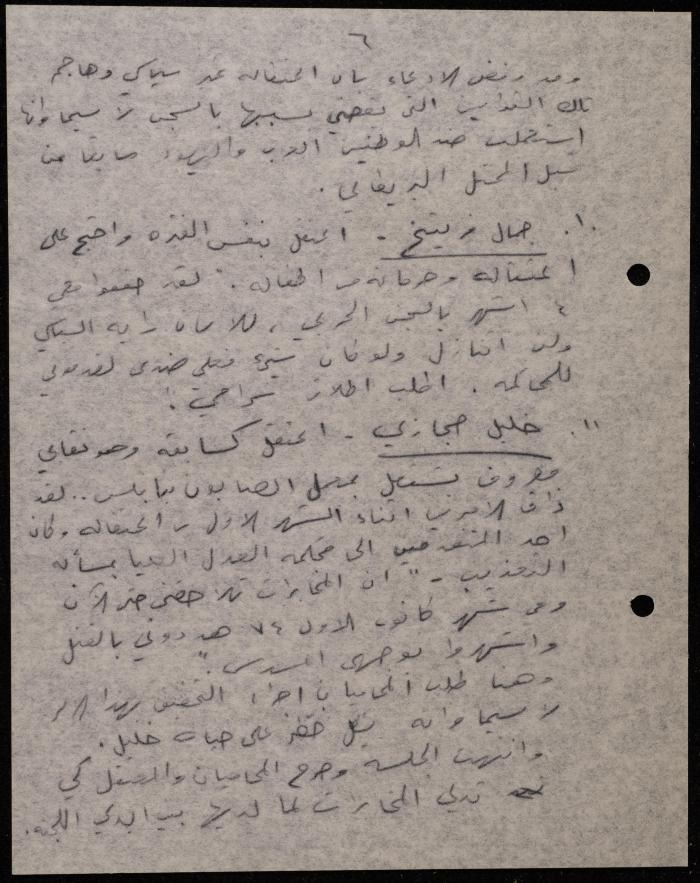 ٦
وقد رفض الادعاء بان اعتقاله غير سياسي وهاجم
تلك القوانين التي تقضي بسببها بالسجن لا سيما وانها
استعملت ضد الوطنيين العرب واليهود سابقا من
قبل المحتل البريطاني .
١٠. جمال فريتخ - اعتقل بنفس الفترة واحتج على
اعتقاله وحرمانه من اطفاله . " لقد حققوا معي
٤ اشهر بالسجن الحربي ، للانسان رايه السياسي
ولن اتنازل ولو كان شيء فعلي ضدي لقدموني
للمحاكمه . اطلب اطلاق سراحي !
١١. خليل حجازي - اعتقل كسابقه وهو نقابي
معروف يشتغل بمعمل الصابون بنابلس .. لقد
ذاق الامرين اثناء الشهر الاول من اعتقاله وكان
احد المتقدمين الى محكمة العدل العليا بمسألة
التعذيب - " ان المخابرات تلاحقني حتى الآن
وفي شهر كانون الاول ٧٤ هددوني بالقتل
واشهروا بوجهي المسدس . "
وهنا طلب المحاميان اجراء التحقيق بهذا الامر
لا سيما وانه يشكل خطر على حياة خليل .
وانتهت الجلسة وخرج المحاميان والمعتقل كي
تدلي المخابرات بما لديها بين ايدي اللجنة .